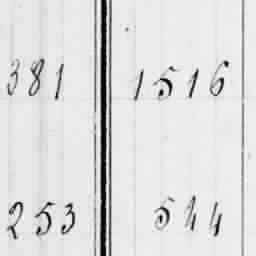 381 1516
253 544